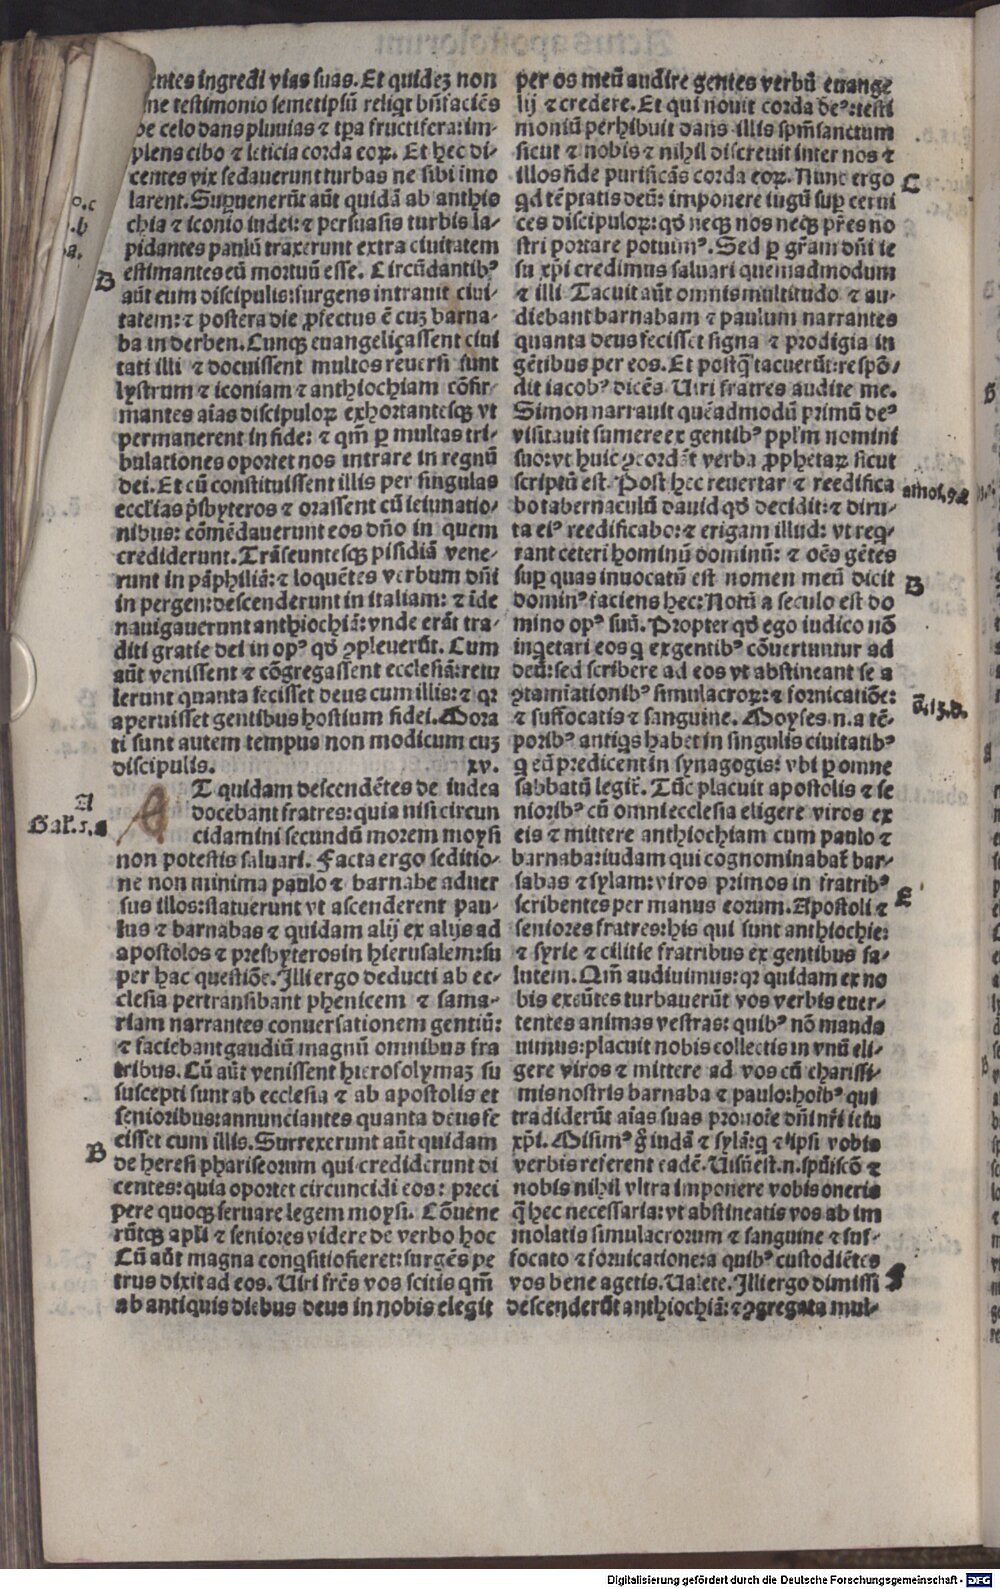 entes ingredi vias suas. Et quidez non
ne testimonio semetipsũ reliqt bñfaciẽs
de celo dans pluuias ⁊ tꝑa fructifera: im-
plens cibo ⁊ leticia corda eoꝝ. Et hec di-
centes vix sedauerunt turbas ne sibi imo
larent. Supuenerũt aũt quidã ab anthio
chia ⁊ iconio iudei: ⁊ persuasis turbis la-
pidantes paulũ traxerunt extra ciuitatem
estimantes eũ mortuũ esse. Circũdantibꝰ
B
aũt eum discipulis: surgens intrauit ciui-
tatem: ⁊ postera die ꝓfectus ẽ cuz barna-
ba in derben. Cunqꝫ euangeliçassent ciui
tati illi ⁊ docuissent multos reuersi sunt
lystrum ⁊ iconiam ⁊ anthiochiam cõfir-
mantes aĩas discipuloꝝ exhortantesqꝫ vt
permanerent in fide: ⁊ qm̃ ꝑ multas tri-
bulationes oportet nos intrare in regnũ
dei. Et cũ constituissent illis per singulas
ecclias p̃sbyteros ⁊ orassent cũ ieiunatio-
nibus: cõmẽdauerunt eos dño in quem
crediderunt. Trãseuntesqꝫ pisidiã vene-
runt in pãphiliã: ⁊ loquẽtes verbum dñi
in pergen: descenderunt in italiam: ⁊ ĩde
nauigauerunt anthiochiã: vnde erãt tra-
diti gratie dei in opꝰ qð ꝯpleuerũt. Cum
aũt venissent ⁊ cõgregassent ecclesiã: retu
lerunt quanta fecisset deus cum illis: ⁊ qꝛ
aperuisset gentibus hostium fidei. Mora
ti sunt autem tempus non modicum cuz
discipulis. xv.
A
Gal. 5. a
A T quidam descendẽtes de iudea
docebant fratres: quia nisi circun
cidamini secundũ morem moysi
non potestis saluari. Facta ergo seditio-
ne non minima paulo ⁊ barnabe aduer
sus illos: statuerunt vt ascenderent pau-
lus ⁊ barnabas ⁊ quidam alij ex alijs ad
apostolos ⁊ presbyteros in hierusalem: su
per hac questiõe. Illi ergo deducti ab ec-
clesia pertransibant phenicem ⁊ sama-
riam narrantes conuersationem gentiũ:
⁊ faciebant gaudiũ magnũ omnibus fra
tribus. Cũ aũt venissent hierosolymaz su
suscepti sunt ab ecclesia ⁊ ab apostolis et
senioribus: annunciantes quanta deus fe
cisset cum illis. Surrexerunt aũt quidam
B
de heresi phariseorum qui crediderunt di
centes: quia oportet circuncidi eos: preci
pere quoqꝫ seruare legem moysi. Cõuene
rũtqꝫ apli ⁊ seniores videre de verbo hoc
Cũ aũt magna conqsitio fieret: surgẽs pe
trus dixit ad eos. Uiri frẽs vos scitis qm̃
ab antiquis diebus deus in nobis elegit
per os meũ audire gentes verbũ euange
lij ⁊ credere. Et qui nouit corda deꝰ: testi
moniũ perhibuit dans illis spm̃sanctum
sicut ⁊ nobis ⁊ nihil discreuit inter nos ⁊
illos fide purificãs corda eoꝝ. Nunc ergo
C
qd tẽptatis deũ: imponere iugũ suꝑ cerui
ces discipuloꝝ: qð neqꝫ nos neqꝫ p̃res no
stri portare potuimꝰ. Sed ꝑ gr̃am dñi ie
su xp̃i credimus saluari quemadmodum
⁊ illi Tacuit aũt omnis multitudo ⁊ au-
diebant barnabam ⁊ paulum narrantes
quanta deus fecisset signa ⁊ prodigia in
gẽtibus per eos. Et postq̃ tacuerũt: respõ-
dit iacobꝰ dicẽs. Uiri fratres audite me.
Simon narrauit quẽadmodũ primũ deꝰ
visitauit sumere ex gentibꝰ pplm̃ nomini
suo: vt huic ꝯcordẽt verba ꝓphetaꝝ sicut
scriptũ est. Post hec reuertar ⁊ reedifica
amos. 9. d
bo tabernaculũ dauid qð decidit: ⁊ diru-
ta eiꝰ reedificabo: ⁊ erigam illud: vt req-
rant ceteri hominũ dominũ: ⁊ oẽs gẽtes
suꝑ quas inuocatũ est nomen meũ dicit
D
dominꝰ faciens hec: Notũ a seculo est do
mino opꝰ suũ. Propter qð ego iudico nõ
inqetari eos q ex gentibꝰ cõuertuntur ad
deũ: sed scribere ad eos vt abstineant se a
ꝯtamĩationibꝰ simulacroꝝ: ⁊ fornicatiõe:
⁊ suffocatis ⁊ sanguine. Moyses .n. a tẽ-
poribꝰ antiqs habet in singulis ciuitatibꝰ
q eũ predicent in synagogis: vbi ꝑ omne
sabbatũ legit̃. Tũc placuit apostolis ⁊ se
nioribꝰ cũ omni ecclesia eligere viros ex
eis ⁊ mittere anthiochiam cum paulo ⁊
barnaba: iudam qui cognominabat̃ bar-
sabas ⁊ sylam: viros primos in fratribꝰ
E
scribentes per manus eorum. Apostoli ⁊
seniores fratres: his qui sunt anthiochie:
⁊ syrie ⁊ cilitie fratribus ex gentibus sa-
lutem. Qm̃ audiuimus: qꝛ quidam ex no
bis exeũtes turbauerũt vos verbis euer-
tentes animas vestras: quibꝰ nõ manda
uimus: placuit nobis collectis in vnũ eli-
gere viros ⁊ mittere ad vos cũ charissi-
mis nostris barnaba ⁊ paulo: hoĩbꝰ qui
tradiderũt aĩas suas pro noĩe dñi nr̃i iesu
xp̃i. Misimꝰ g̃ iudã ⁊ sylã: q ⁊ ipsi vobis
verbis referent eadẽ. Uisũ est .n. spũiscõ ⁊
nobis nihil vltra imponere vobis oneris
q̃ hec necessaria: vt abstineatis vos ab im
molatis simulacrorum ⁊ sanguine ⁊ suf-
focato ⁊ fornicatione: a quibꝰ custodiẽtes
vos bene agetis. Ualete. Illi ergo dimissi
descenderũt anthiochiã: ⁊ ꝯgregata mul-
Digitalisierung gefördert durch die Deutsche Forschungsgemeinschaft - DFG